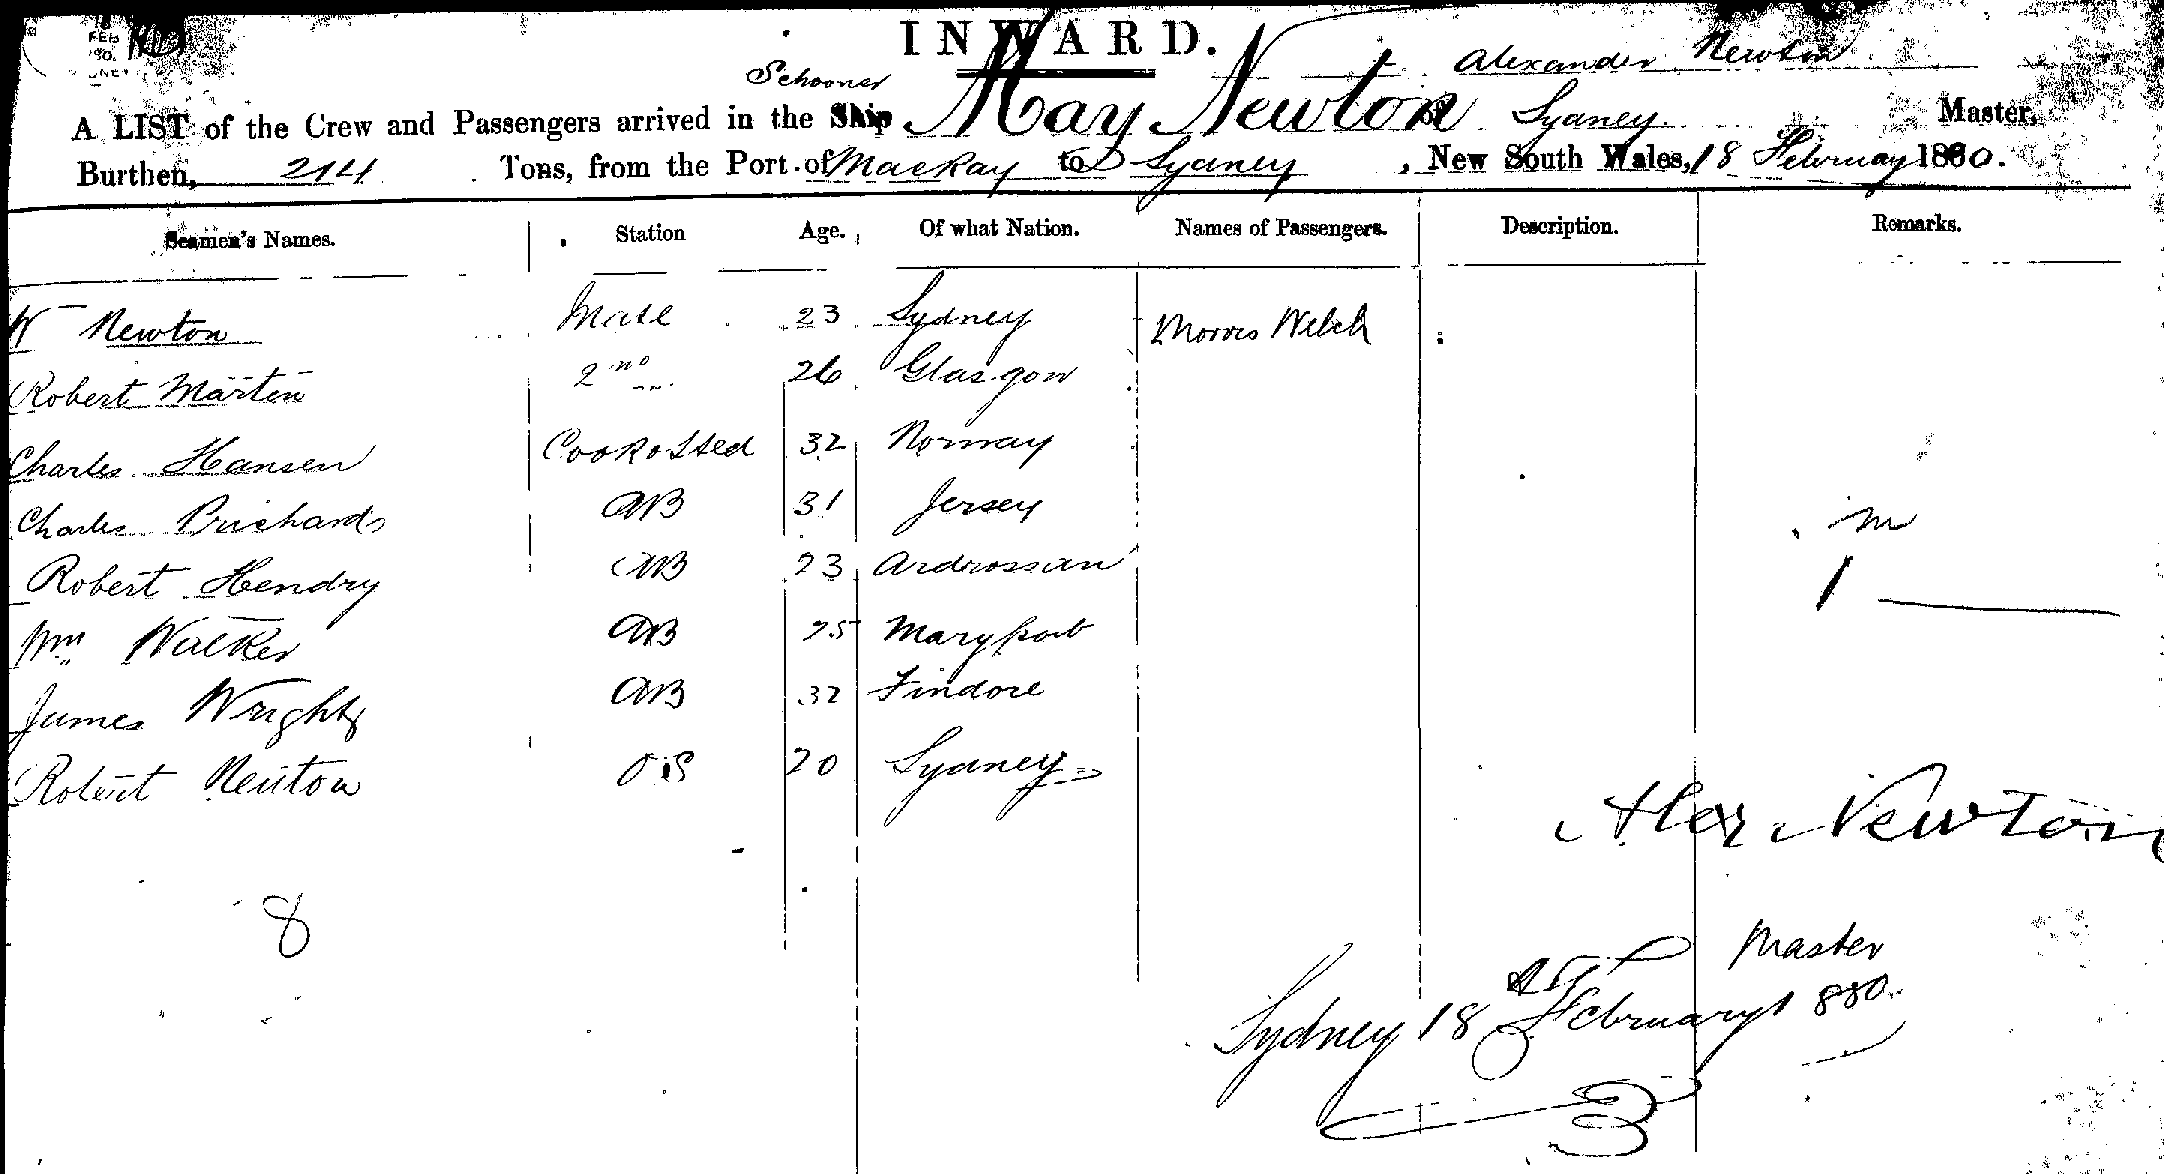 FEB
INWARD.
Alexander Newton
Schooner
A LIST of the Crew and Passengers arrived in the Ship May Newton of Sydney Master,
Burthen, 214 Tons, from the Port of Mackay to Sydney, New South Wales, 18 February 1880.
Seamen's Names. Station Age. Of what Nation. Names of Passengers. Description. Remarks.
W Newton Mate 23 Sydney Morris Welch
Robert Martin 2nd 26 Glasgow
Charles Hansen Cook & Sted 32 Norway
Charles Prichards AB 31 Jersey m
Robert Hendry AB 23 Ardrossan 1
Wm Walker AB 25 Maryport
James Wright AB 32 Findore
Robert Newton OS 20 Sydney
Alex Newton
8
Master
Sydney 18 February 1880